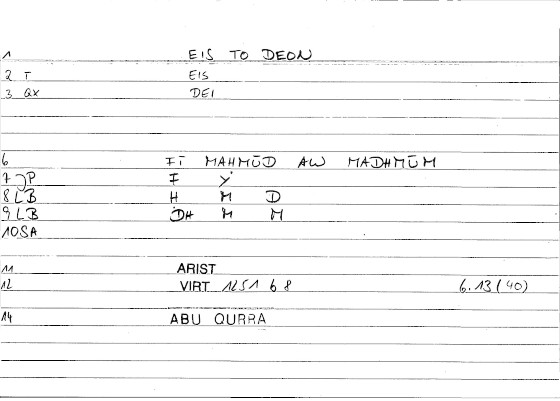 1 EIS TO DEON
2 T EIS
3 QX DEI
6 FĪ MAHMŪD AW MADHMŪM
7 JP F Y
8 LB H M D
9 LB DH M M
10 SA
11 ARIST
12 VIRT 1251 b 8 6.13 (40)
14 ABU QURRA